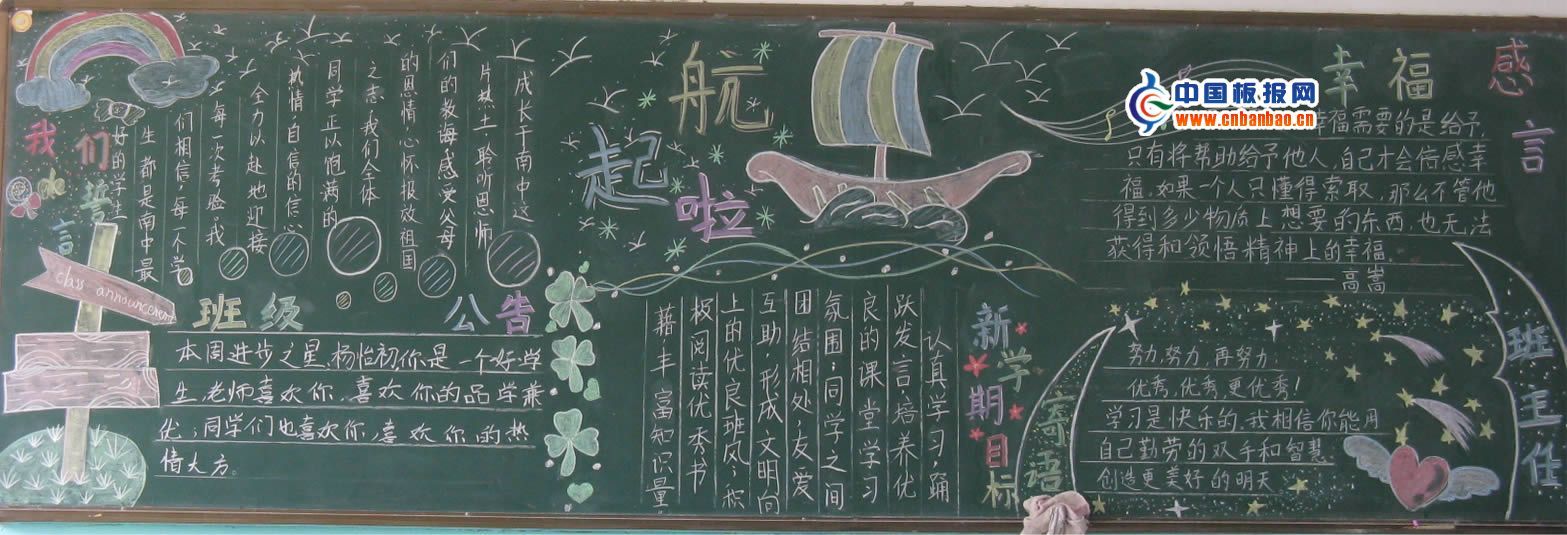 我们誓言
成长于南中这
片热土，聆听恩师
们的教诲感受父母
的恩情，心怀报效祖国
之志，我们全体
同学正以饱满的
热情，自信的信心
全力以赴地迎接
每一次考验。我
们相信，每一个学
生都是南中最
好的学生
class announcement
班级公告
本周进步之星，杨怡初，你是一个好学
生，老师喜欢你，喜欢你的品学兼
优；同学们也喜欢你，喜欢你的热
情大方。
起航啦
新学期目标
认真学习，踊
跃发言，培养优
良的课堂学习
氛围；同学之间
团结相处，友爱
互助，形成文明向
上的优良班风；积
极阅读优秀书
籍，丰富知识量。
幸福感言
中国板报网
www.cnbanbao.cn
幸福需要的是给予，
只有将帮助给予他人，自己才会倍感幸
福。如果一个人只懂得索取，那么不管他
得到多少物质上想要的东西，也无法
获得和领悟精神上的幸福。
——高嵩
班主任寄语
努力，努力，再努力！
优秀，优秀，更优秀！
学习是快乐的，我相信你能用
自己勤劳的双手和智慧
创造更美好的明天。